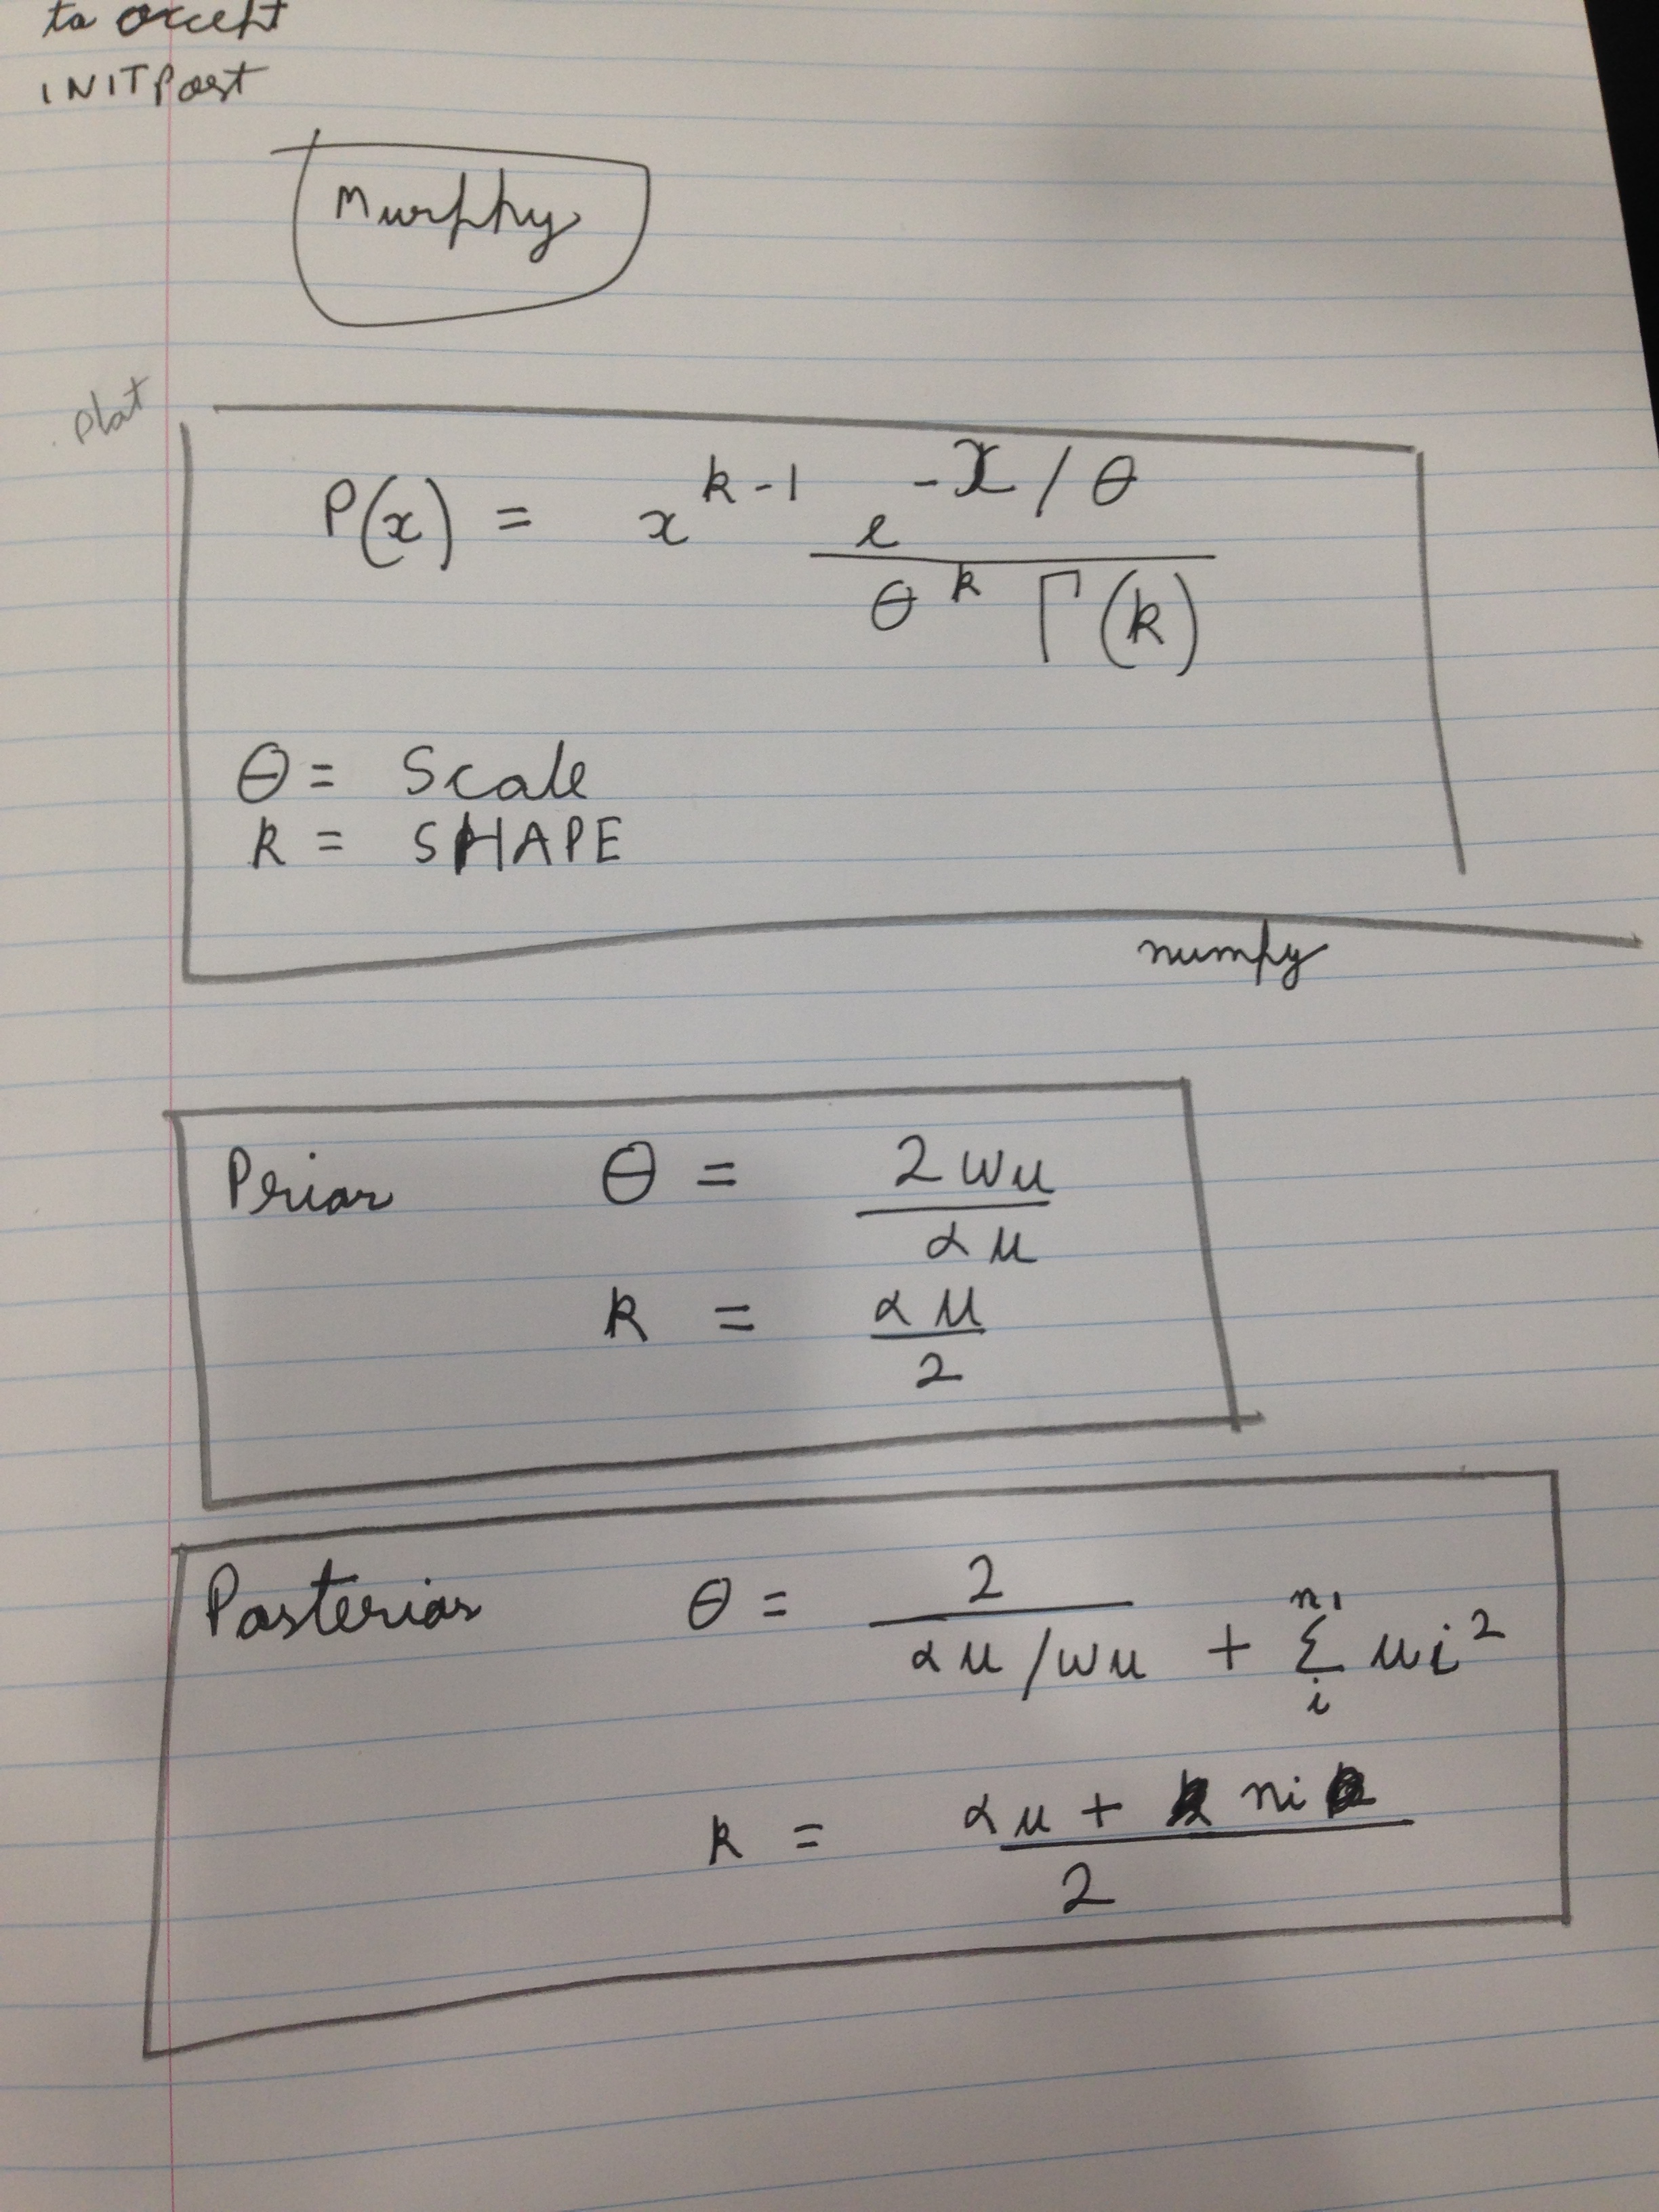 to accept
INITPost
Murphy
Plot
P(x) = x^{k-1} e^{-x/θ} / θ^k Γ(k)
θ = Scale
k = SHAPE
numpy
Prior θ = 2wu / αu
k = αu / 2
Posterior θ = 2 / αu/wu + Σ_i^{n1} ui^2
k = αu + ni / 2